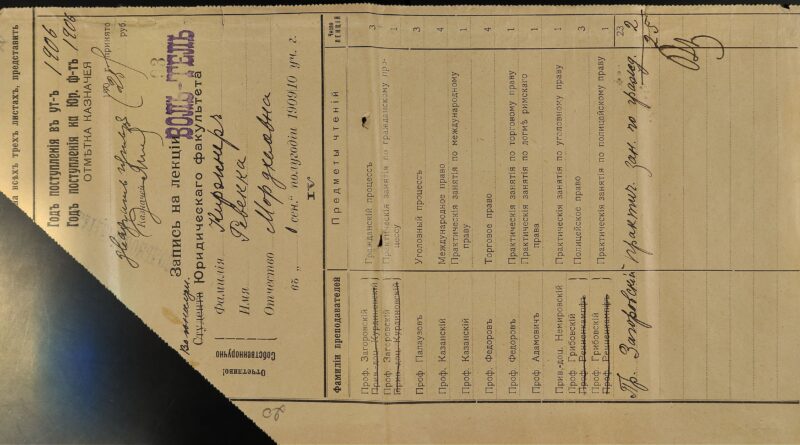 на всѣхъ трехъ листахъ, представить
Годъ поступленія въ ут-ъ 1906
Годъ поступленія на Юр. ф-тъ 1906
ОТМѢТКА КАЗНАЧЕЯ
принято
руб.
ВОЛЬ-ТЕЛЬ
Запись на лекціи
Студента Юридическаго факультета
Отчетливо!
Собственноручно
Фамилія Киржнеръ
Имя Ревекка
Отчество Мордковна
въ „ сен.“ полугодіи 1909/10 уч. г.
IV
Фамиліи преподавателей
Предметы чтеній
Число лекцій
Проф. Загоровскій Гражданскій процессъ 3
Прив.-доц. Курдиновскій
Проф. Загоровскій Практическія занятія по гражданскому про- 1
Прив.-доц. Курдиновскій цессу
Проф. Палаузовъ Уголовный процессъ 3
Проф. Казанскій Международное право 4
Проф. Казанскій Практическія занятія по международному 1
праву
Проф. Федоровъ Торговое право 4
Проф. Федоровъ Практическія занятія по торговому праву 1
Проф. Адамовичъ Практическія занятія по догмѣ римскаго 1
права
Прив.-доц. Немировскій Практическія занятія по уголовному праву 1
Проф. Грибовскій Полицейское право 3
Проф. Ренненкампфъ
Проф. Грибовскій Практическія занятія по полицейскому праву 1
Проф. Ренненкампфъ
23
Пр. Загоровскій практич. зан. по гражд. 2
25